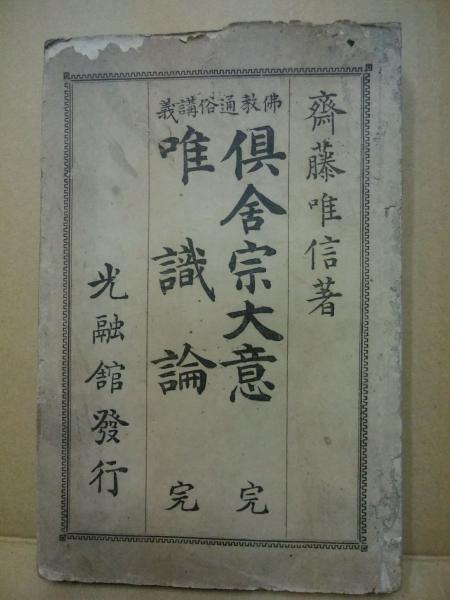 齋藤唯信著
佛教通俗講義
俱舍宗大意 完
唯識論 完
光融舘發行